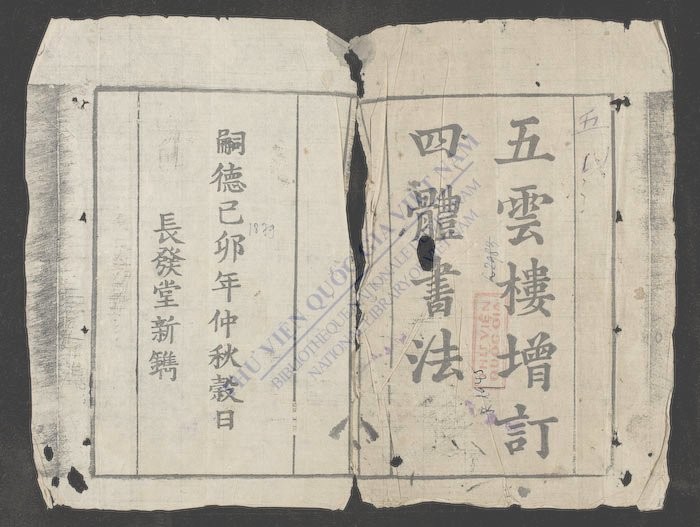 五雲樓增訂
四體書法
嗣德己卯年仲秋穀日
長發堂新鐫
1879
五
THƯ VIỆN QUỐC GIA VIỆT NAM
BIBLIOTHÈQUE NATIONALE DU VIETNAM
NATIONAL LIBRARY OF VIETNAM
THƯ VIỆN
QUỐC GIA